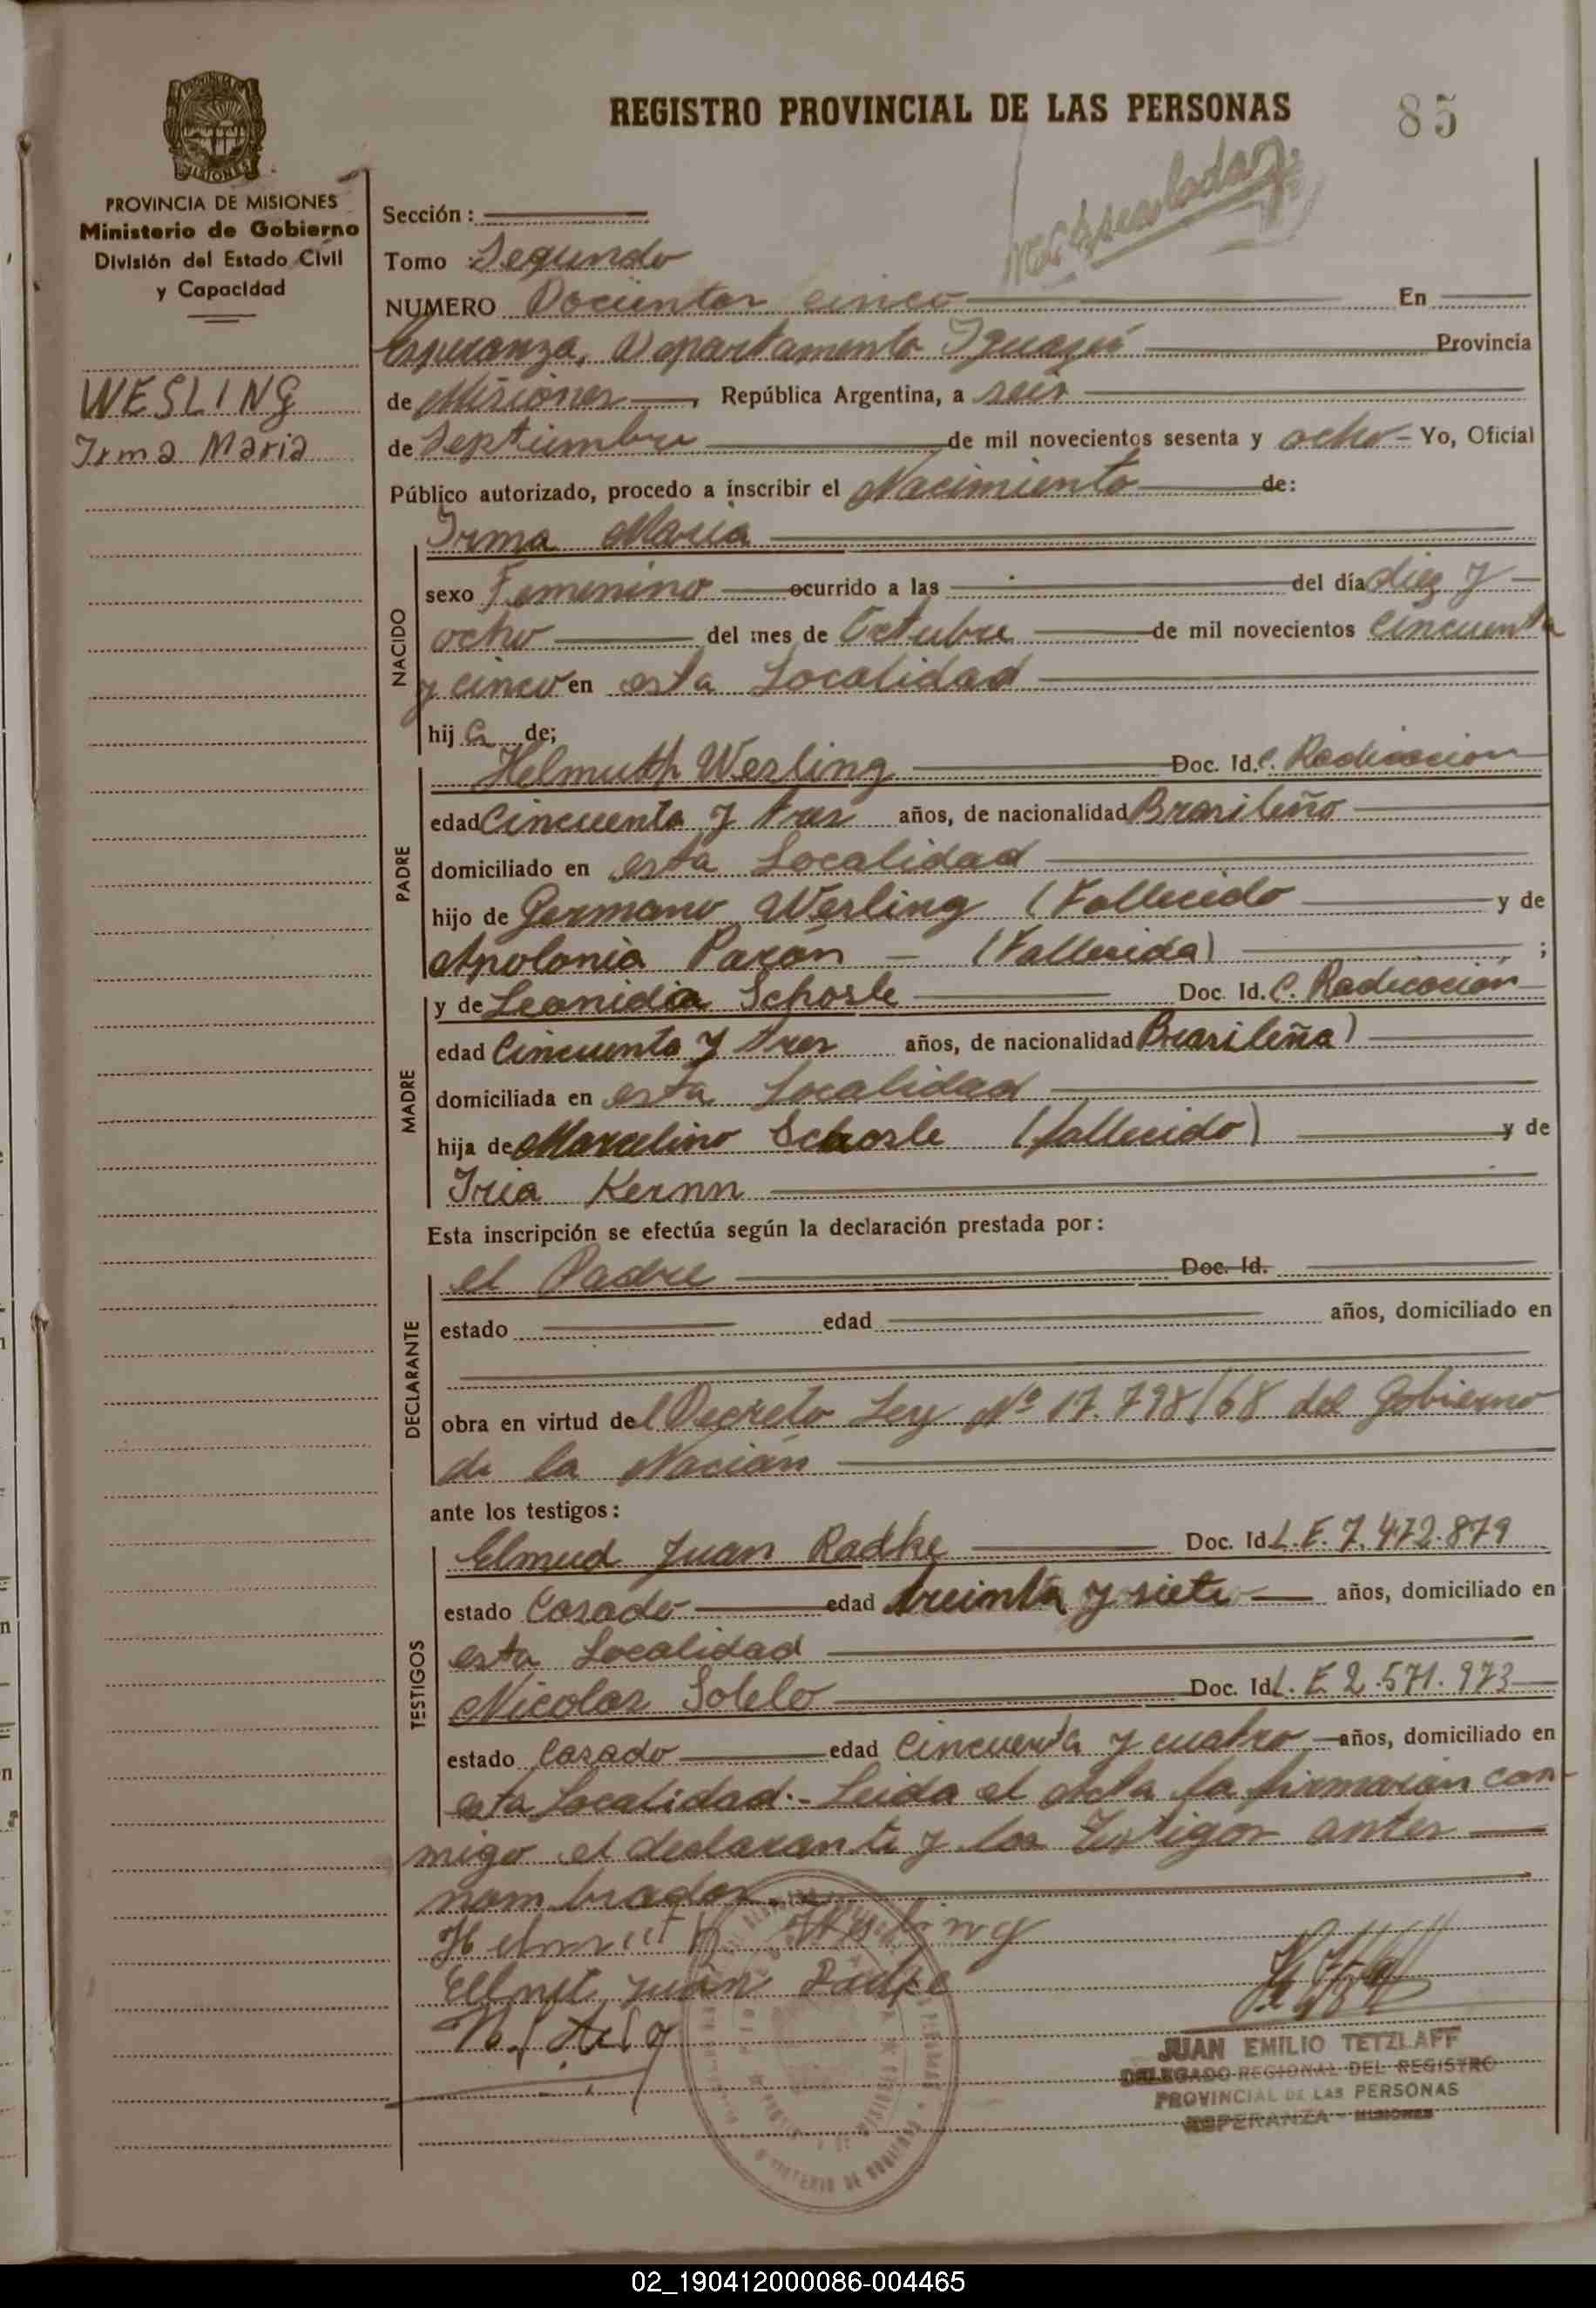 REGISTRO PROVINCIAL DE LAS PERSONAS
85
PROVINCIA DE MISIONES
Ministerio de Gobierno
División del Estado Civil
y Capacidad
WESLING
Irma Maria
Sección :
Tomo Segundo
NUMERO Docientos cinco En
Esperanza, Departamento Iguazú Provincia
de Misiones, República Argentina, a seis
de Septiembre de mil novecientos sesenta y ocho - Yo, Oficial
Público autorizado, procedo a inscribir el Nacimiento de:
NACIDO
Irma Maria
sexo Femenino ocurrido a las del día diez y
ocho del mes de Octubre de mil novecientos cincuenta
y cinco en esta Localidad
hija de;
PADRE
Helmuth Wesling Doc. Id. C. Radicacion
edad Cincuenta y tres años, de nacionalidad Brasileño
domiciliado en esta Localidad
hijo de Germano Wesling (Fallecido y de
Apolonia (Fallecida) ;
MADRE
y de Leonidia Schosle Doc. Id. C. Radicación
edad Cincuenta y tres años, de nacionalidad Brasileña)
domiciliada en esta Localidad
hija de Marcelino Schosle (fallecido) y de
Iria Kernn
Esta inscripción se efectúa según la declaración prestada por:
DECLARANTE
el Padre Doc. Id.
estado edad años, domiciliado en
obra en virtud del Decreto Ley Nº 17.798/68 del Gobierno
de la Nación
ante los testigos:
TESTIGOS
Elmud Juan Radke Doc. Id L.E. 7.472.879
estado Casado edad treinta y siete años, domiciliado en
esta Localidad
Nicolas Sotelo Doc. Id L. E 2.571.973
estado Casado edad Cincuenta y cuatro años, domiciliado en
esta Localidad.- Leida el acta la firmarán con-
migo el declarante y los Testigos antes
nombrados.-
Helmuth Wesling
Juan Radke
JUAN EMILIO TETZLAFF
DELEGADO REGIONAL DEL REGISTRO
PROVINCIAL DE LAS PERSONAS
ESPERANZA - MISIONES
02_190412000086-004465